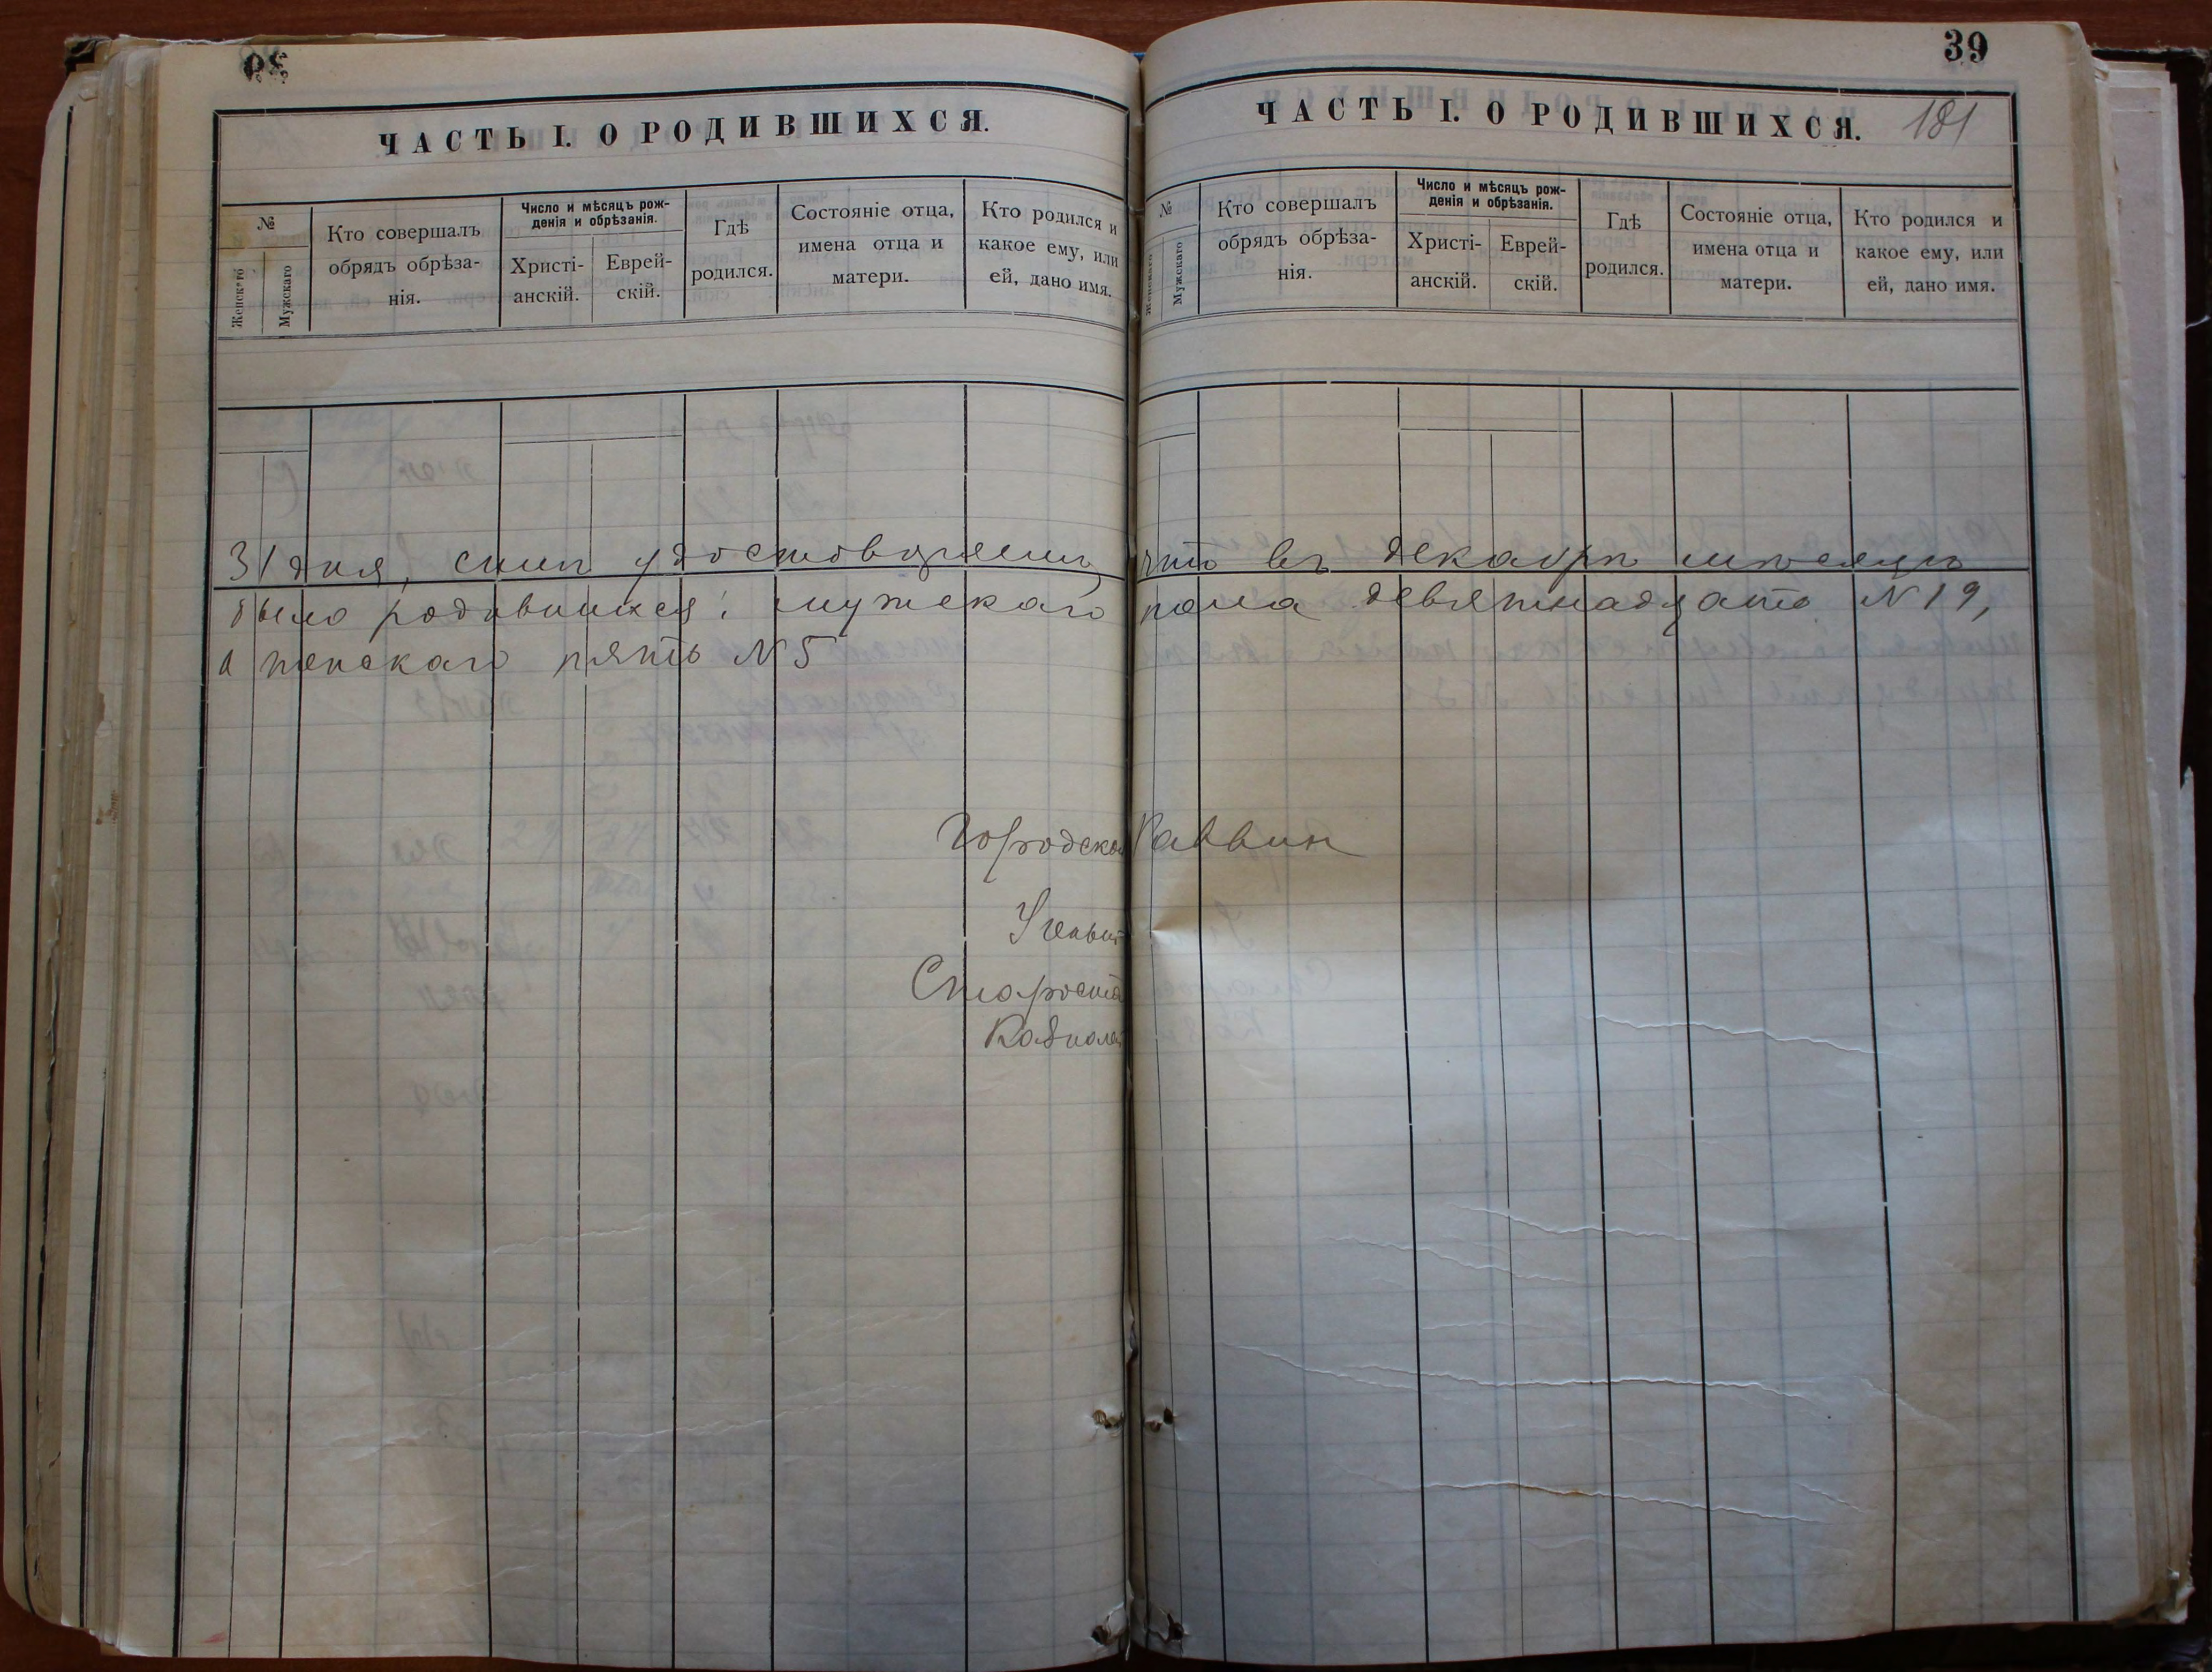 39
ЧАСТЬ I. О РОДИВШИХСЯ.
№
Женскаго
Мужскаго
Кто совершалъ
обрядъ обрѣза-
нія.
Число и мѣсяцъ рож-
денія и обрѣзанія.
Христі-
анскій.
Еврей-
скій.
Гдѣ
родился.
Состояніе отца,
имена отца и
матери.
Кто родился и
какое ему, или
ей, дано имя.
39
ЧАСТЬ I. О РОДИВШИХСЯ.
181
№
Женскаго
Мужскаго
Кто совершалъ
обрядъ обрѣза-
нія.
Число и мѣсяцъ рож-
денія и обрѣзанія.
Христі-
анскій.
Еврей-
скій.
Гдѣ
родился.
Состояніе отца,
имена отца и
матери.
Кто родился и
какое ему, или
ей, дано имя.
31 дня, симъ удостовѣряемъ, что въ декабрѣ мѣсяцѣ
было родившихся: мужскаго пола девятнадцать N 19,
а женскаго пять N 5
Городской Раввин
Ученый
Староста
Казначей